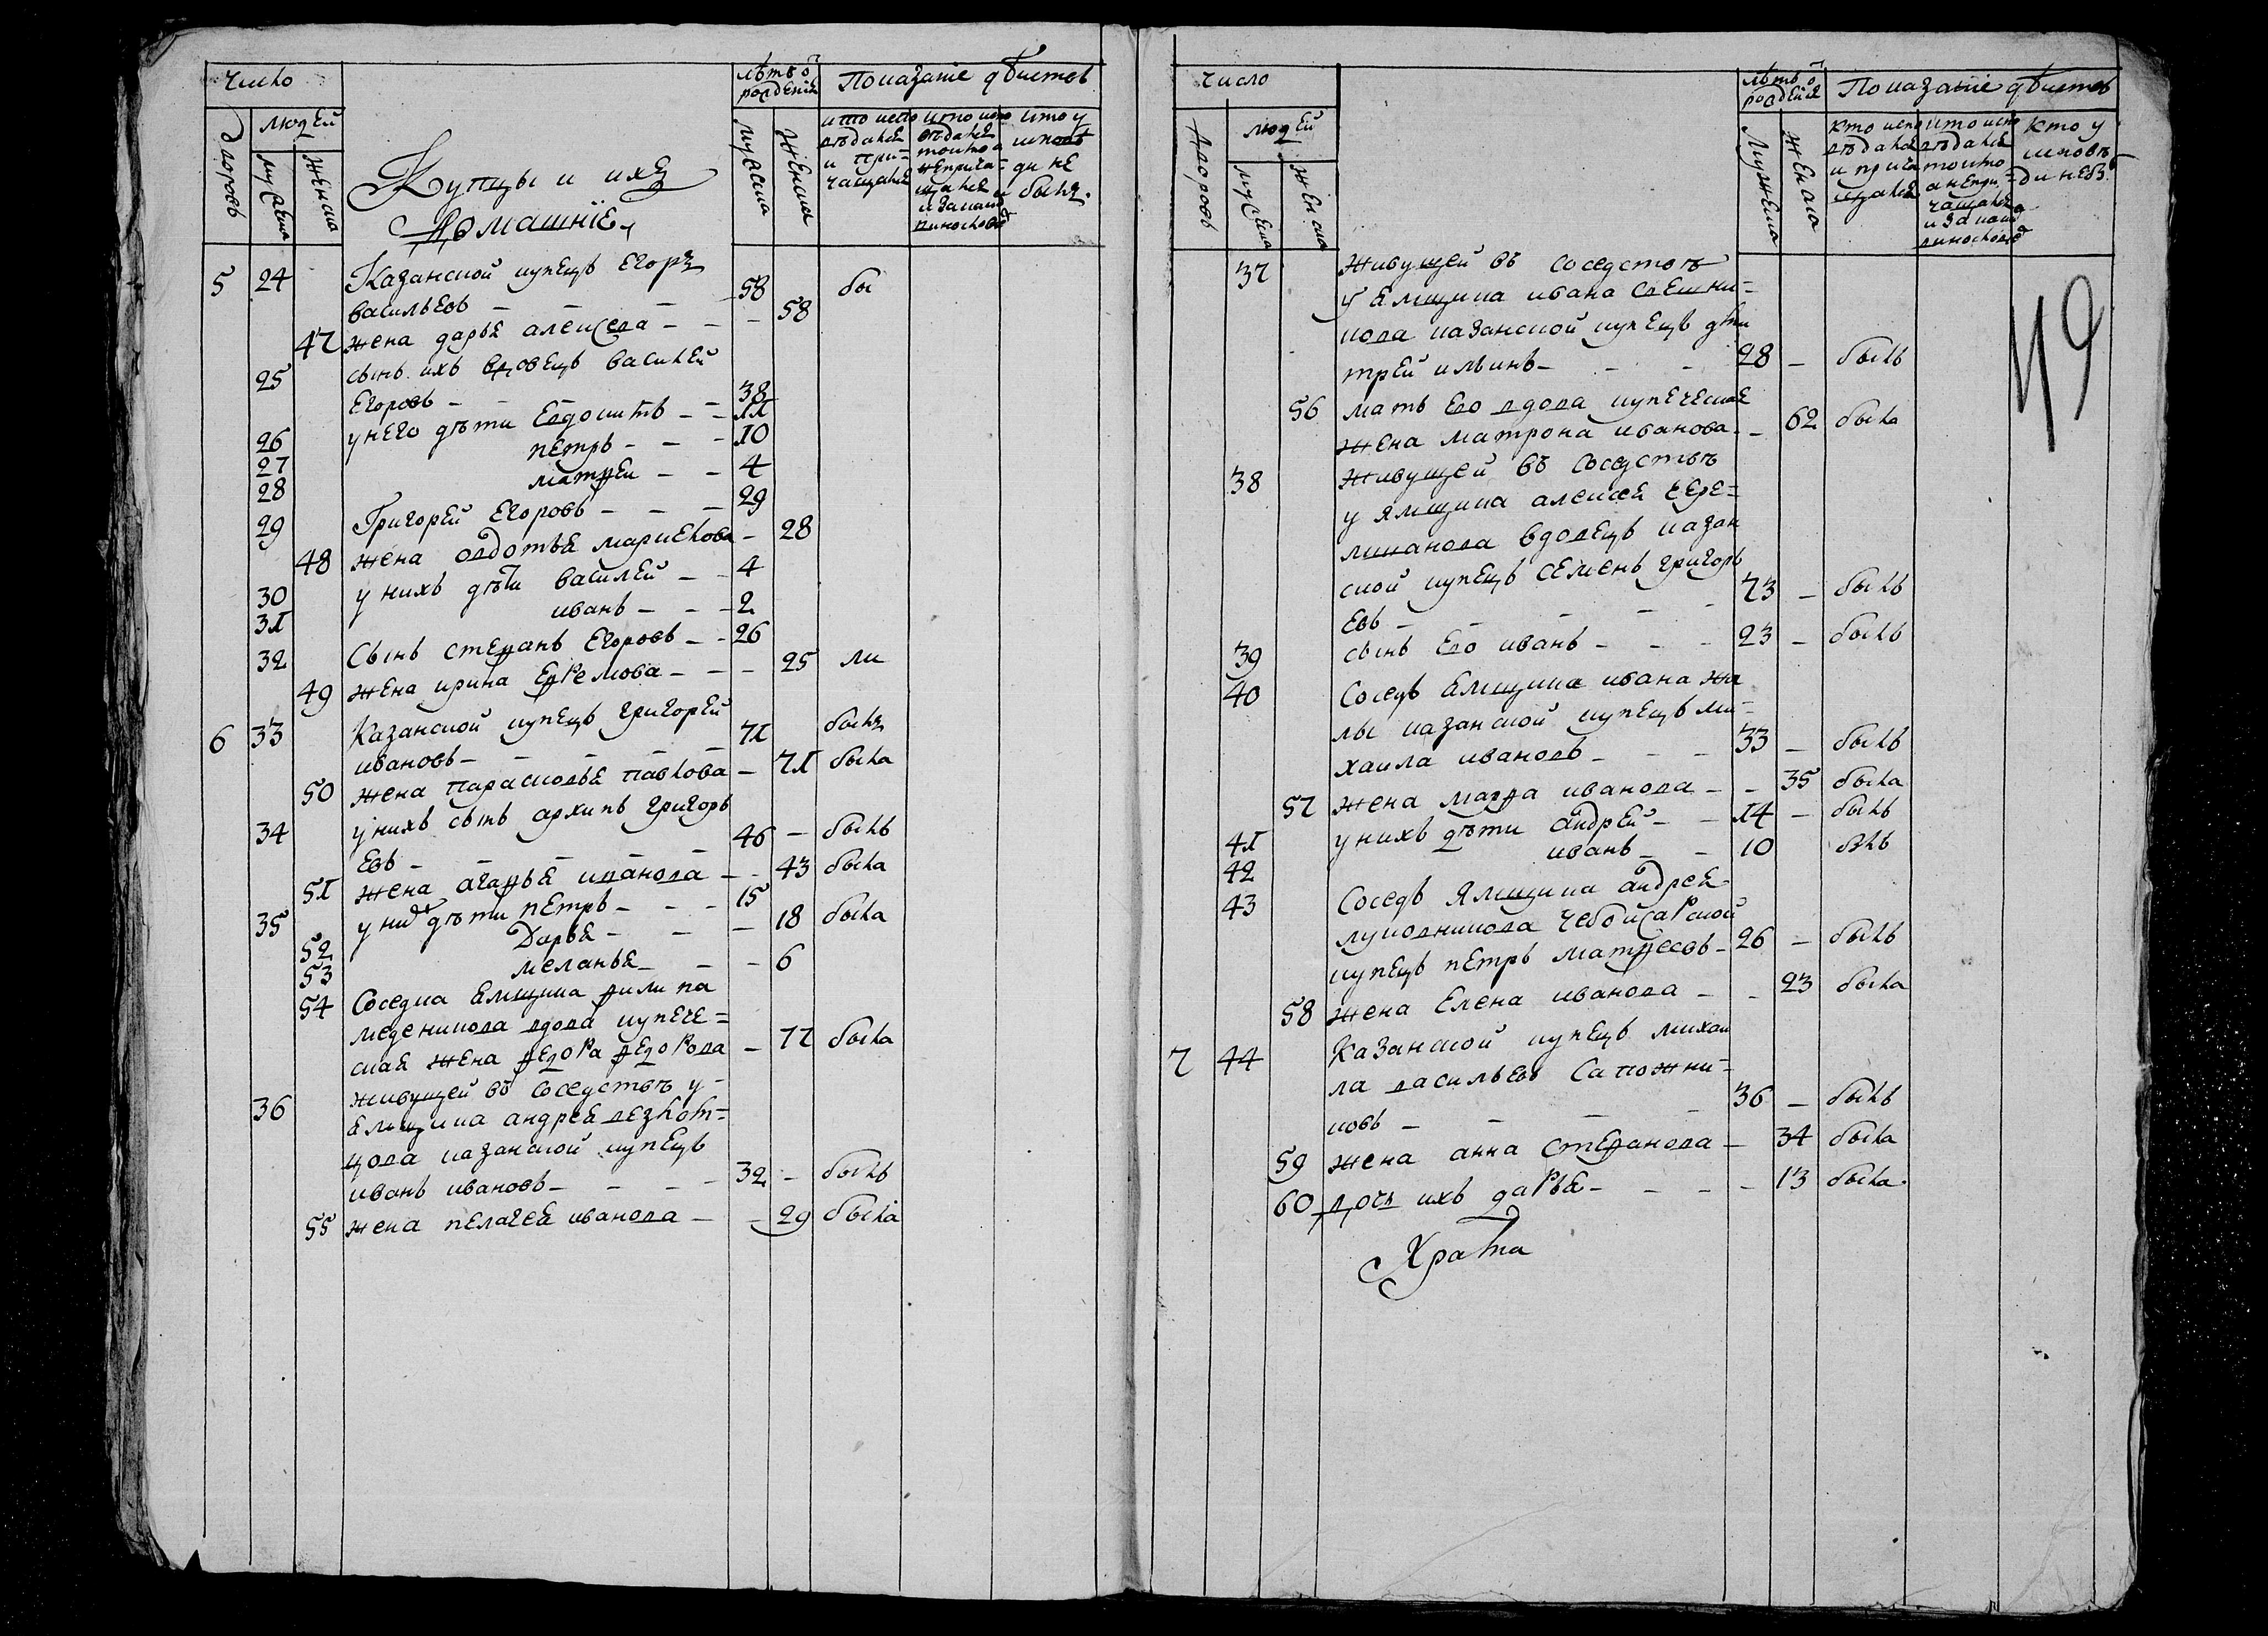 Число
лѣтъ ѿ рождения
Показание дѣйствъ
дворовъ
людей
мужеска
женска
Купцы и ихъ
домашние
мужеска
женска
кто исповѣдался и причащался
кто исповѣдался токмо а не причащался и за каким виносло
кто у исповѣди не былъ.
5 24 Казанской купецъ Егоръ
васильевъ — — — 58 бы
47 жена дарья алексеева — — — 58
25 сынъ ихъ вдовецъ василей
Егоровъ — — — 38
26 у него дѣти Евдокимъ — — 11
27 петръ — — — 10
28 матфеи — — 4
29 Григорей Егоровъ — — — 29
48 жена овдотья маркелова — 28
30 у нихъ дѣти василей — — 4
31 иванъ — — — 2
32 Сынъ степанъ Егоровъ — — 26
49 жена ирина Ефремова — — — 25 ли
6 33 Казанской купецъ григорей
ивановъ — — — — 71 былъ
50 жена парасковья павлова — 71 была
34 у нихъ сынъ архипъ григорь
евъ — — — — — 46 — былъ
51 жена агафья иванова — — 43 была
35 у них дѣти петръ — — — 15
52 Дарья — — — 18 была
53 меланья — — — 6
54 Соседка ямщика филипа
меденикова вдова купече=
ская жена федора федорова — 77 была
36 живущей въ соседствѣ у
ямщика андрея
казанской купецъ
иванъ ивановъ — — — — 32 — былъ
55 жена пелагея иванова — — 29 была
Число
лѣтъ ѿ рождения
Показание дѣйствъ
дворовъ
людей
мужеска
женска
мужеска
женска
кто исповѣдался и причащался
кто исповѣдался токмо а не причащался и за каким виносло
кто у исповѣди не былъ
49
37 живущей въ соседствѣ
у ямщика ивана свешни=
кова казанской купецъ дми
трей ильинъ — — — 28 — былъ
56 мать ево вдова купеческая
жена матрона иванова — — 62 была
38 живущей въ соседствѣ
у ямщика алексея чере=
миканова вдовецъ казан
ской купецъ семенъ григорь
евъ — — — — — 73 — былъ
39 сынъ ево иванъ — — — 23 — былъ
40 Соседъ ямщика ивана жи
лы казанской купецъ ми=
хаила ивановъ — — — 33 — былъ
57 жена марфа иванова — — 35 была
41 у нихъ дѣти андрей — — 14 — былъ
42 иванъ — — 10 былъ
43 Соседъ ямщика андрея
луковникова чебоксарской
купецъ петръ матфеевъ — 26 — былъ
58 жена Елена иванова — — 23 была
7 44 Казанской купецъ михаи
ла васильевъ Сапожни=
ковъ — — — — 36 — былъ
59 жена анна степанова — 34 была
60 дочь ихъ дарья — — — — 13 была.